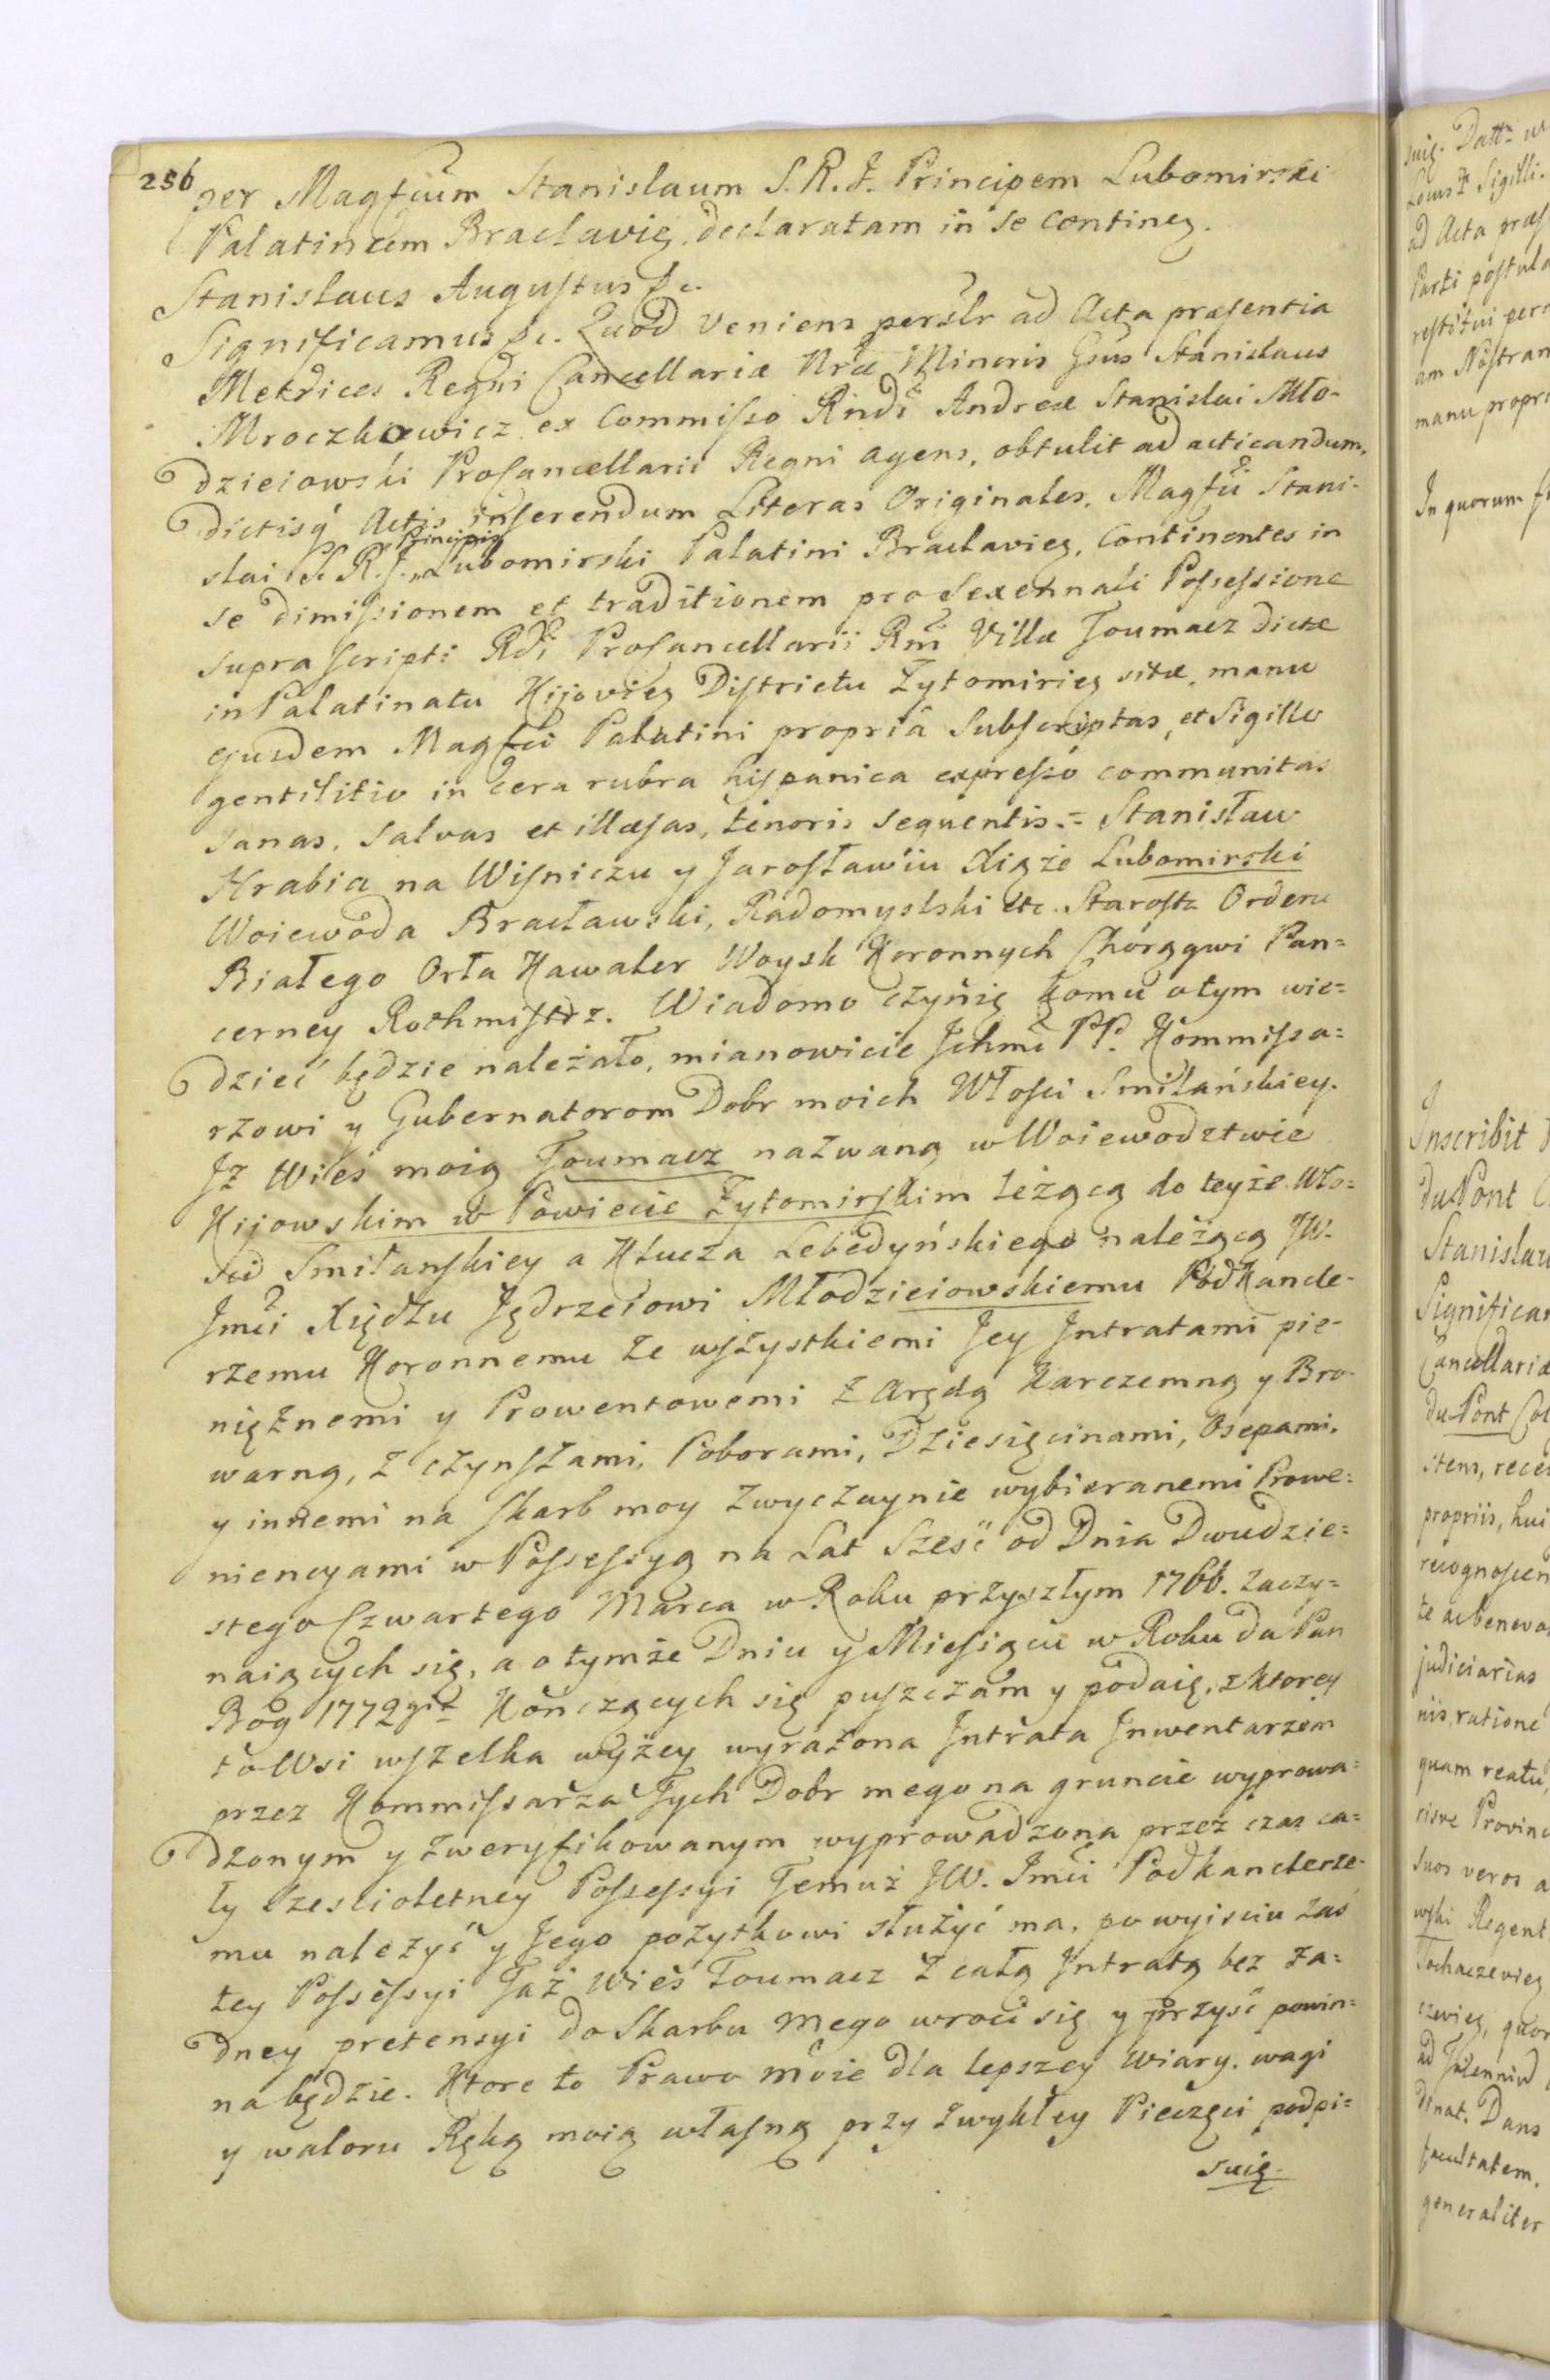 256
per Magfcum Stanislaum S. R. J. Principem Lubomirski
Palatinum Braclavieɳ. declaratam in se contineɳ.
Stanislaus Augustus &c.
Significamus &c. Quod veniens persłr ad Acta præsentia
Metrices Regni Cancellariæ Nræ Minoris Gsus Stanislaus
Mroczkowicz ex Commisso Rndi Andreæ Stanislai Mło-
dzieiowski Procancellarii Regni agens, obtulit ad acticandum,
dictisq́ Actis inserendum Literas Originales, Magfci Stani-
slai S. R. J. Principis Lubomirski Palatini Braclavieɳ, Continentes in
se dimissionem et traditionem pro Sexennali Possessione
suprascripti Rdi Procancellarii Rni Villæ Toumacz dictæ
in Palatinatu Kijovieɳ Districtu Zytomirieɳ sitæ, manu
ejusdem Magfci Palatini propriâ Subscriptas, et Sigillo
gentilitio in cera rubra hispanica expresso communitas
sanas, salvas et illæsas, tenoris sequentis.= Stanisław
Hrabia na Wiśniczu y Jarosławiu Xiąże Lubomirski
Woiewoda Bracławski, Radomyslski etc. Starosta Orderu
Białego Orła Kawaler Woysk Koronnych Chorągwi Pan=
cerney Rothmistrz. Wiadomo czynię komu otym wie=
dzieć będzie należało, mianowicie Jchmć PP. Kommissa=
rzowi y Gubernatorom Dobr moich Włości Smilańskiey.
Jż Wieś moią Toumacz nazwaną w Woiewodztwie
Kijowskim w Powiecie Zytomirskim leżącą do teyże Wło=
sci Smilanskiey a Klucza Lebedyńskiego należącą JW.
Jmći Xiędzu Jędrzeiowi Młodzieiowskiemu Podkancle-
rzemu Koronnemu ze wszystkiemi Jey Jntratami pie-
niężnemi y Prowentowemi z Arędą Karczemną y Bro-
warną, z czynszami, Poborami, Dziesięcinami, Osepami,
y innemi na skarb moy zwyczaynie wybieranemi Prowe=
niencyami w Possessyą na Lat Sześć od Dnia Dwudzie=
stego Czwartego Marca w Roku przyszłym 1766. zaczy=
naiących się, a o tymże Dniu y Miesiącu w Roku da Pan
Bóg 1772git Kończących się puszczam y podaię, z ktorey
to Wsi wszelka wyżey wyrażona Jntrata Jnwentarzem
przez Kommissarza Tych Dobr mego na gruncie wyprowa=
dzonym y zweryfikowanym wyprowadzona przez czas ca=
ły sześcioletney Possessyi Temuż JW. Jmći Podkanclerze-
mu należyć y Jego pożytkowi służyć ma, po wyiściu zaś
tey Possessyi Taż Wieś Toumacz z całą Jntratą bez ża=
dney pretensyi do Skarbu mego wroci się y przyść powin=
na będzie. Ktore to Prawo moie dla lepszey Wiary, wagi
y waloru Ręką moią własną przy zwykłey Pieczęci podpi=
suię.
suię. Datt
Locus Sigilli.
ad Acta præs
Parti postula
restitui per
am Nostram
manu propri
In quorum fi
Inscribit
du Pont
Stanislau
Significam
Cancellariæ
du Pont Col
item, rece
propriis, hui
recognoscen
te ac benevo
judiciarias
nis, ratione
quam reatu,
cisve Provinc
suos veros a
wski Regent
Sochaczevieɳ
czevieɳ, quor
dinat. Dans
facultatem.
generaliter